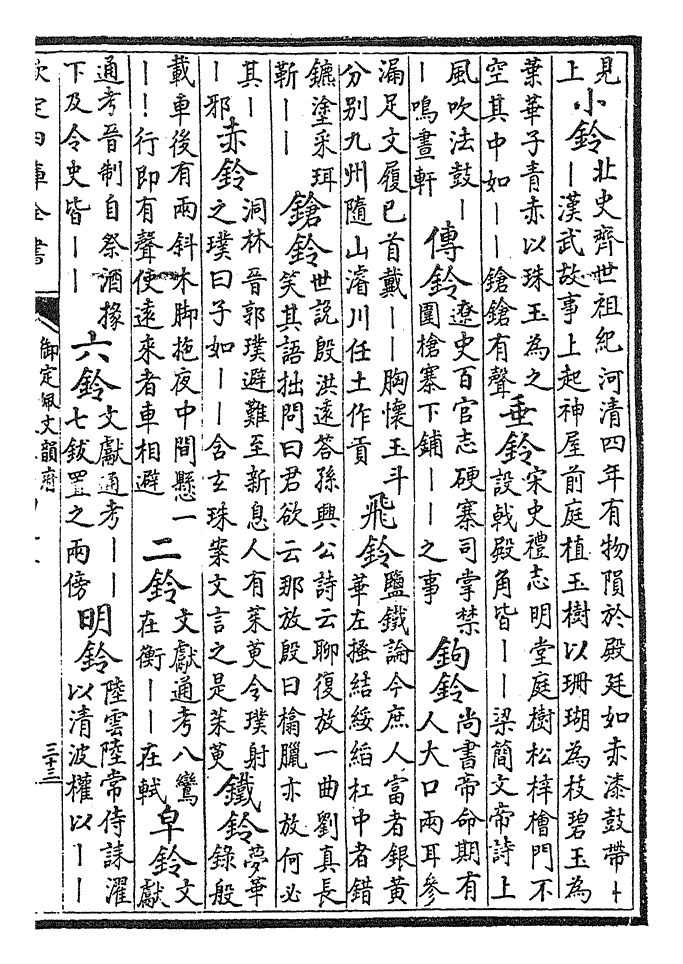 見
上
小鈴
北史齊世祖紀河清四年有物隕於殿廷如赤漆鼓帶丨
丨漢武故事上起神屋前庭植玉樹以珊瑚為枝碧玉為
葉華子青赤以珠玉為之
空其中如丨丨鎗鎗有聲
垂鈴
宋史禮志明堂庭樹松梓檜門不
設戟殿角皆丨丨梁簡文帝詩上
風吹法鼓丨
丨鳴晝軒
傳鈴
遼史百官志硬寨司掌禁
圍槍寨下鋪丨丨之事
鉤鈴
尚書帝命期有
人大口兩耳參
漏足文履巳首戴丨丨胸懷玉斗
分别九州隨山濬川任土作貢
飛鈴
鹽鐵論今庶人富者銀黄
華左搔結綏縚杠中者錯
鑣塗采珥
靳丨丨
鎗鈴
世說殷洪遠答孫興公詩云聊復放一曲劉真長
笑其語拙問曰君欲云那放殷曰㯓臘亦放何必
其丨
丨邪
赤鈴
洞林晉郭璞避難至新息人有茱萸令璞射
之璞曰子如丨丨含玄珠案文言之是茱萸
鐵鈴
夢華
錄般
載車後有兩斜木脚拖夜中間懸一
丨丨行即有聲使遠來者車相避
二鈴
文獻通考八鸞
在衡丨丨在軾
皁鈴
文
獻
通考晉制自祭酒掾
下及令史皆丨丨
六鈴
文獻通考丨丨
七鈸置之兩傍
明鈴
陸雲陸常侍誄濯
以清波權以丨丨
欽定四庫全書
御定佩文韻府
三十三